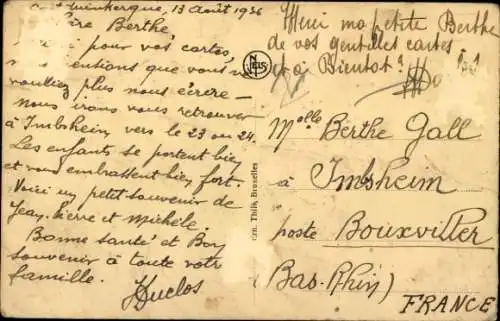 13 Août 1936
Chère Berthe
pour vos cartes,
nous pensions que vous ne
vouliez plus nous écrire -
nous irons vous retrouver
à Imbsheim vers le 23 ou 24.
Les enfants se portent bien
et vous embrassent bien fort.
Voici un petit souvenir de
Jean-Pierre et Michèle.
Bonne santé et Bon
souvenir à toute votre
famille.
HDuclos
Merci ma petite Berthe
de vos gentilles cartes
et à Bientôt!
NELS
Ern. Thill, Bruxelles
Melle Berthe Gall
à Imbsheim
poste Bouxviller
(Bas-Rhin)
FRANCE